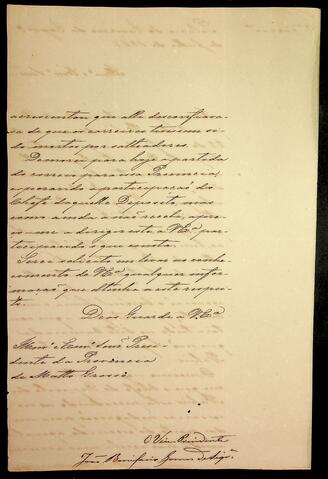 acrescentou que elle desconfiava
de que os correios tivessem si
do mortos por salteadores.
Demorei para hoje a partida
do correio para essa Provincia,
esperando a participação do
Chefe daquelle Deposito, mas
como ainda a não recebi, apres
so-me a dirigir esta a VExª par
ticipando o que consta.
Serei solicito em levar ao conhe
cimento de VExª qualquer infor
mação que obtenha a este respei
to.
Deos Guarde a VExª
Illmº e Exmº Senr Presi
dente da Provincia
de Matto Grosso
O Vice Presidente
João Bonifacio Gomes de Siqª